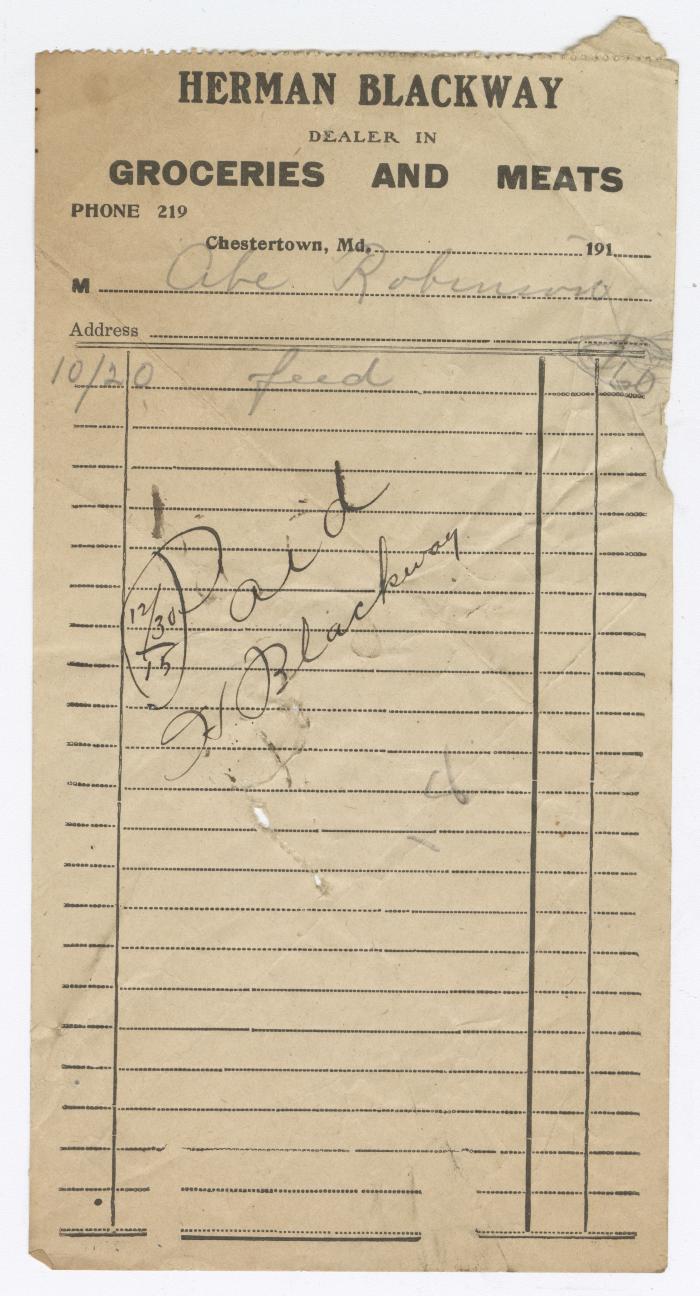 HERMAN BLACKWAY
DEALER IN
GROCERIES AND MEATS
PHONE 219
Chestertown, Md. 191
M Abe Robinson
Address
10/20 feed 60
Paid
12/30/15
H Blackway